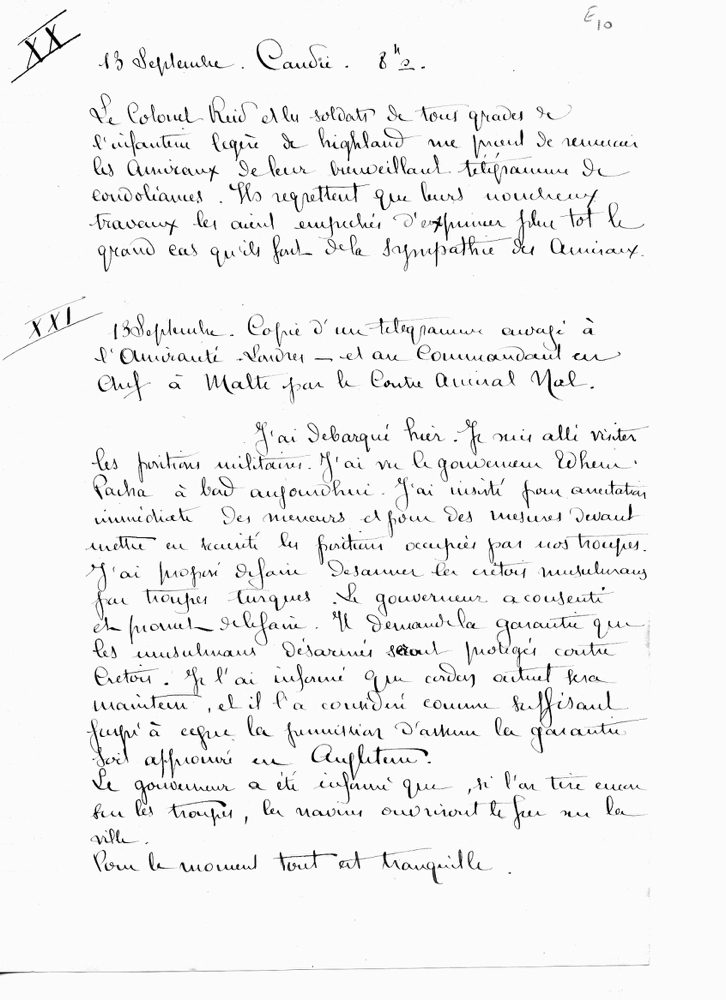 E10
XX
13 Septembre. Candie. 8h a.
Le Colonel Reid et les soldats de tous grades de
l'infanterie legère de highland me prient de remercier
les Amiraux de leur bienveillant télégramme de
condoléances. Ils regrettent que leurs nombreux
travaux les aient empechés d'exprimer plus tot le
grand cas qu'ils font de la sympathie des Amiraux.
XXI
13 Septembre. Copie d'un telegramme envoyé à
l'Amirauté - Londres - et au Commandant en
Chef à Malte par le Contre Amiral Noel.
J'ai debarqué hier. Je suis allé visiter
les positions militaires. J'ai vu le gouverneur Edhem
Pacha à bord aujourdhui. J'ai insisté pour arrestation
immédiate des meneurs et pour des mesures devant
mettre en securité les positions occupées par nos troupes.
J'ai proposé de faire desarmer les crétois musulmans
par troupes turques. Le gouverneur a consenti
et promet de le faire. Il demande la garantie que
les musulmans désarmés soient protégés contre
Cretois. Je l'ai informé que cordon actuel sera
maintenu, et il l'a consideré comme suffisant
jusqu'à ceque la permission d'assumer la garantie
soit approuvée en Angleterre.
Le gouverneur a été informé que, si l'on tire encore
sur les troupes, les navires ouvriront le feu sur la
ville.
Pour le moment tout est tranquille.